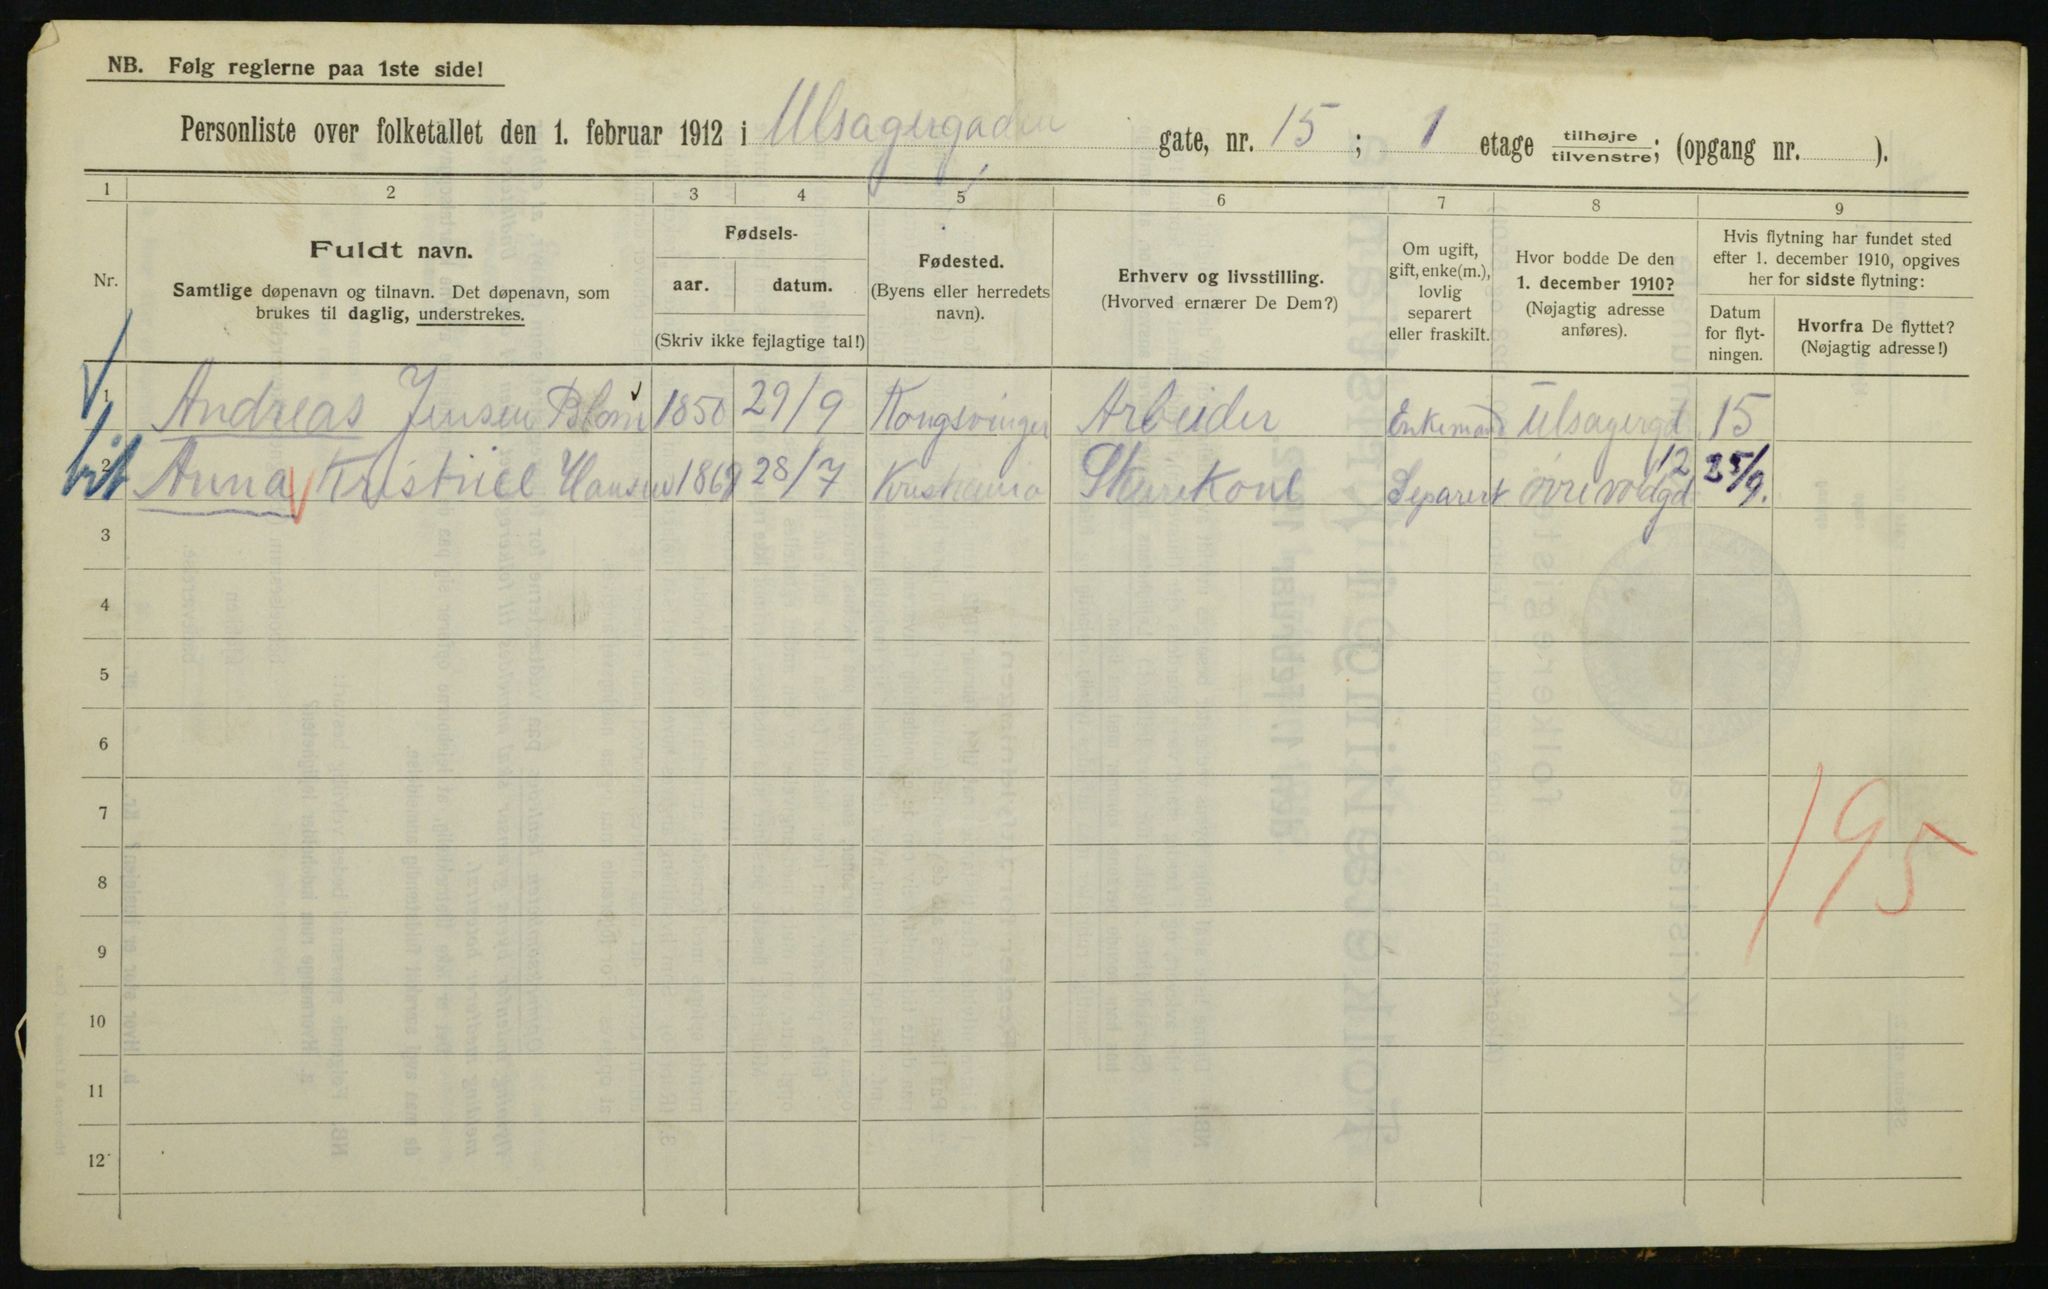 NB. Følg reglerne paa 1ste side!
Personliste over folketallet den 1. februar 1912 i Ulsagergaden gate, nr. 15 ; 1 etage tilhøjre tilvenstre; (opgang nr. ).
1 2 3 4 5 6 7 8 9
Nr.
Fuldt navn.
Samtlige døpenavn og tilnavn. Det døpenavn, som
brukes til daglig, understrekes.
Fødsels-
aar. datum.
(Skriv ikke fejlagtige tal!)
Fødested.
(Byens eller herredets
navn).
Erhverv og livsstilling.
(Hvorved ernærer De Dem?)
Om ugift,
gift, enke(m.),
lovlig
separert
eller fraskilt.
Hvor bodde De den
1. december 1910?
(Nøjagtig adresse
anføres).
Hvis flytning har fundet sted
efter 1. december 1910, opgives
her for sidste flytning:
Datum
for flyt-
ningen.
Hvorfra De flyttet?
(Nøjagtig adresse!)
1 Andreas Jensen Blom 1850 29/9 Kongsvinger Arbeider Enkemand Ulsagergd 15
2 Anna Hansen 28/7 Kristiania Separert 12 25/9.
3
4
5
6
7
8
9
10
11
12
195